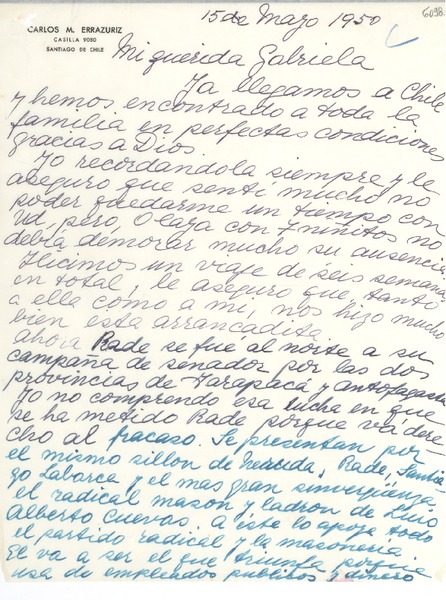 15 de Mayo 1950
6098
CARLOS M. ERRAZURIZ
CASILLA 9080
SANTIAGO DE CHILE
Mi querida Gabriela
Ya llegamos a Chile
y hemos encontrado a toda la
familia en perfectas condiciones
gracias a Dios
Yo recordandola siempre y le
aseguro que sentí mucho no
poder quedarme un tiempo con
Ud, pero, Olaya con 7 niñitos no
debía demorar mucho su ausencia
Hicimos un viaje de seis semanas
en total, le aseguro que, tanto
a ella como a mi, nos hizo mucho
bien esta arrancadita
ahora Rade se fué al norte a su
campaña de senador por las dos
provincias de Tarapacá y Antofagasta
Yo no comprendo esa lucha en que
se ha metido Rade porque va dere-
cho al fracaso. Se presentan por
el mismo sillon de Neruda, Rade, Santia
go Labarca y el mas gran sinvergüenza
el radical mason y ladron de Luis
Alberto Cuevas. a este lo apoya todo
el partido radical y la masoneria
El va a ser el que triunfa porque
usa de empleados publicos y dinero